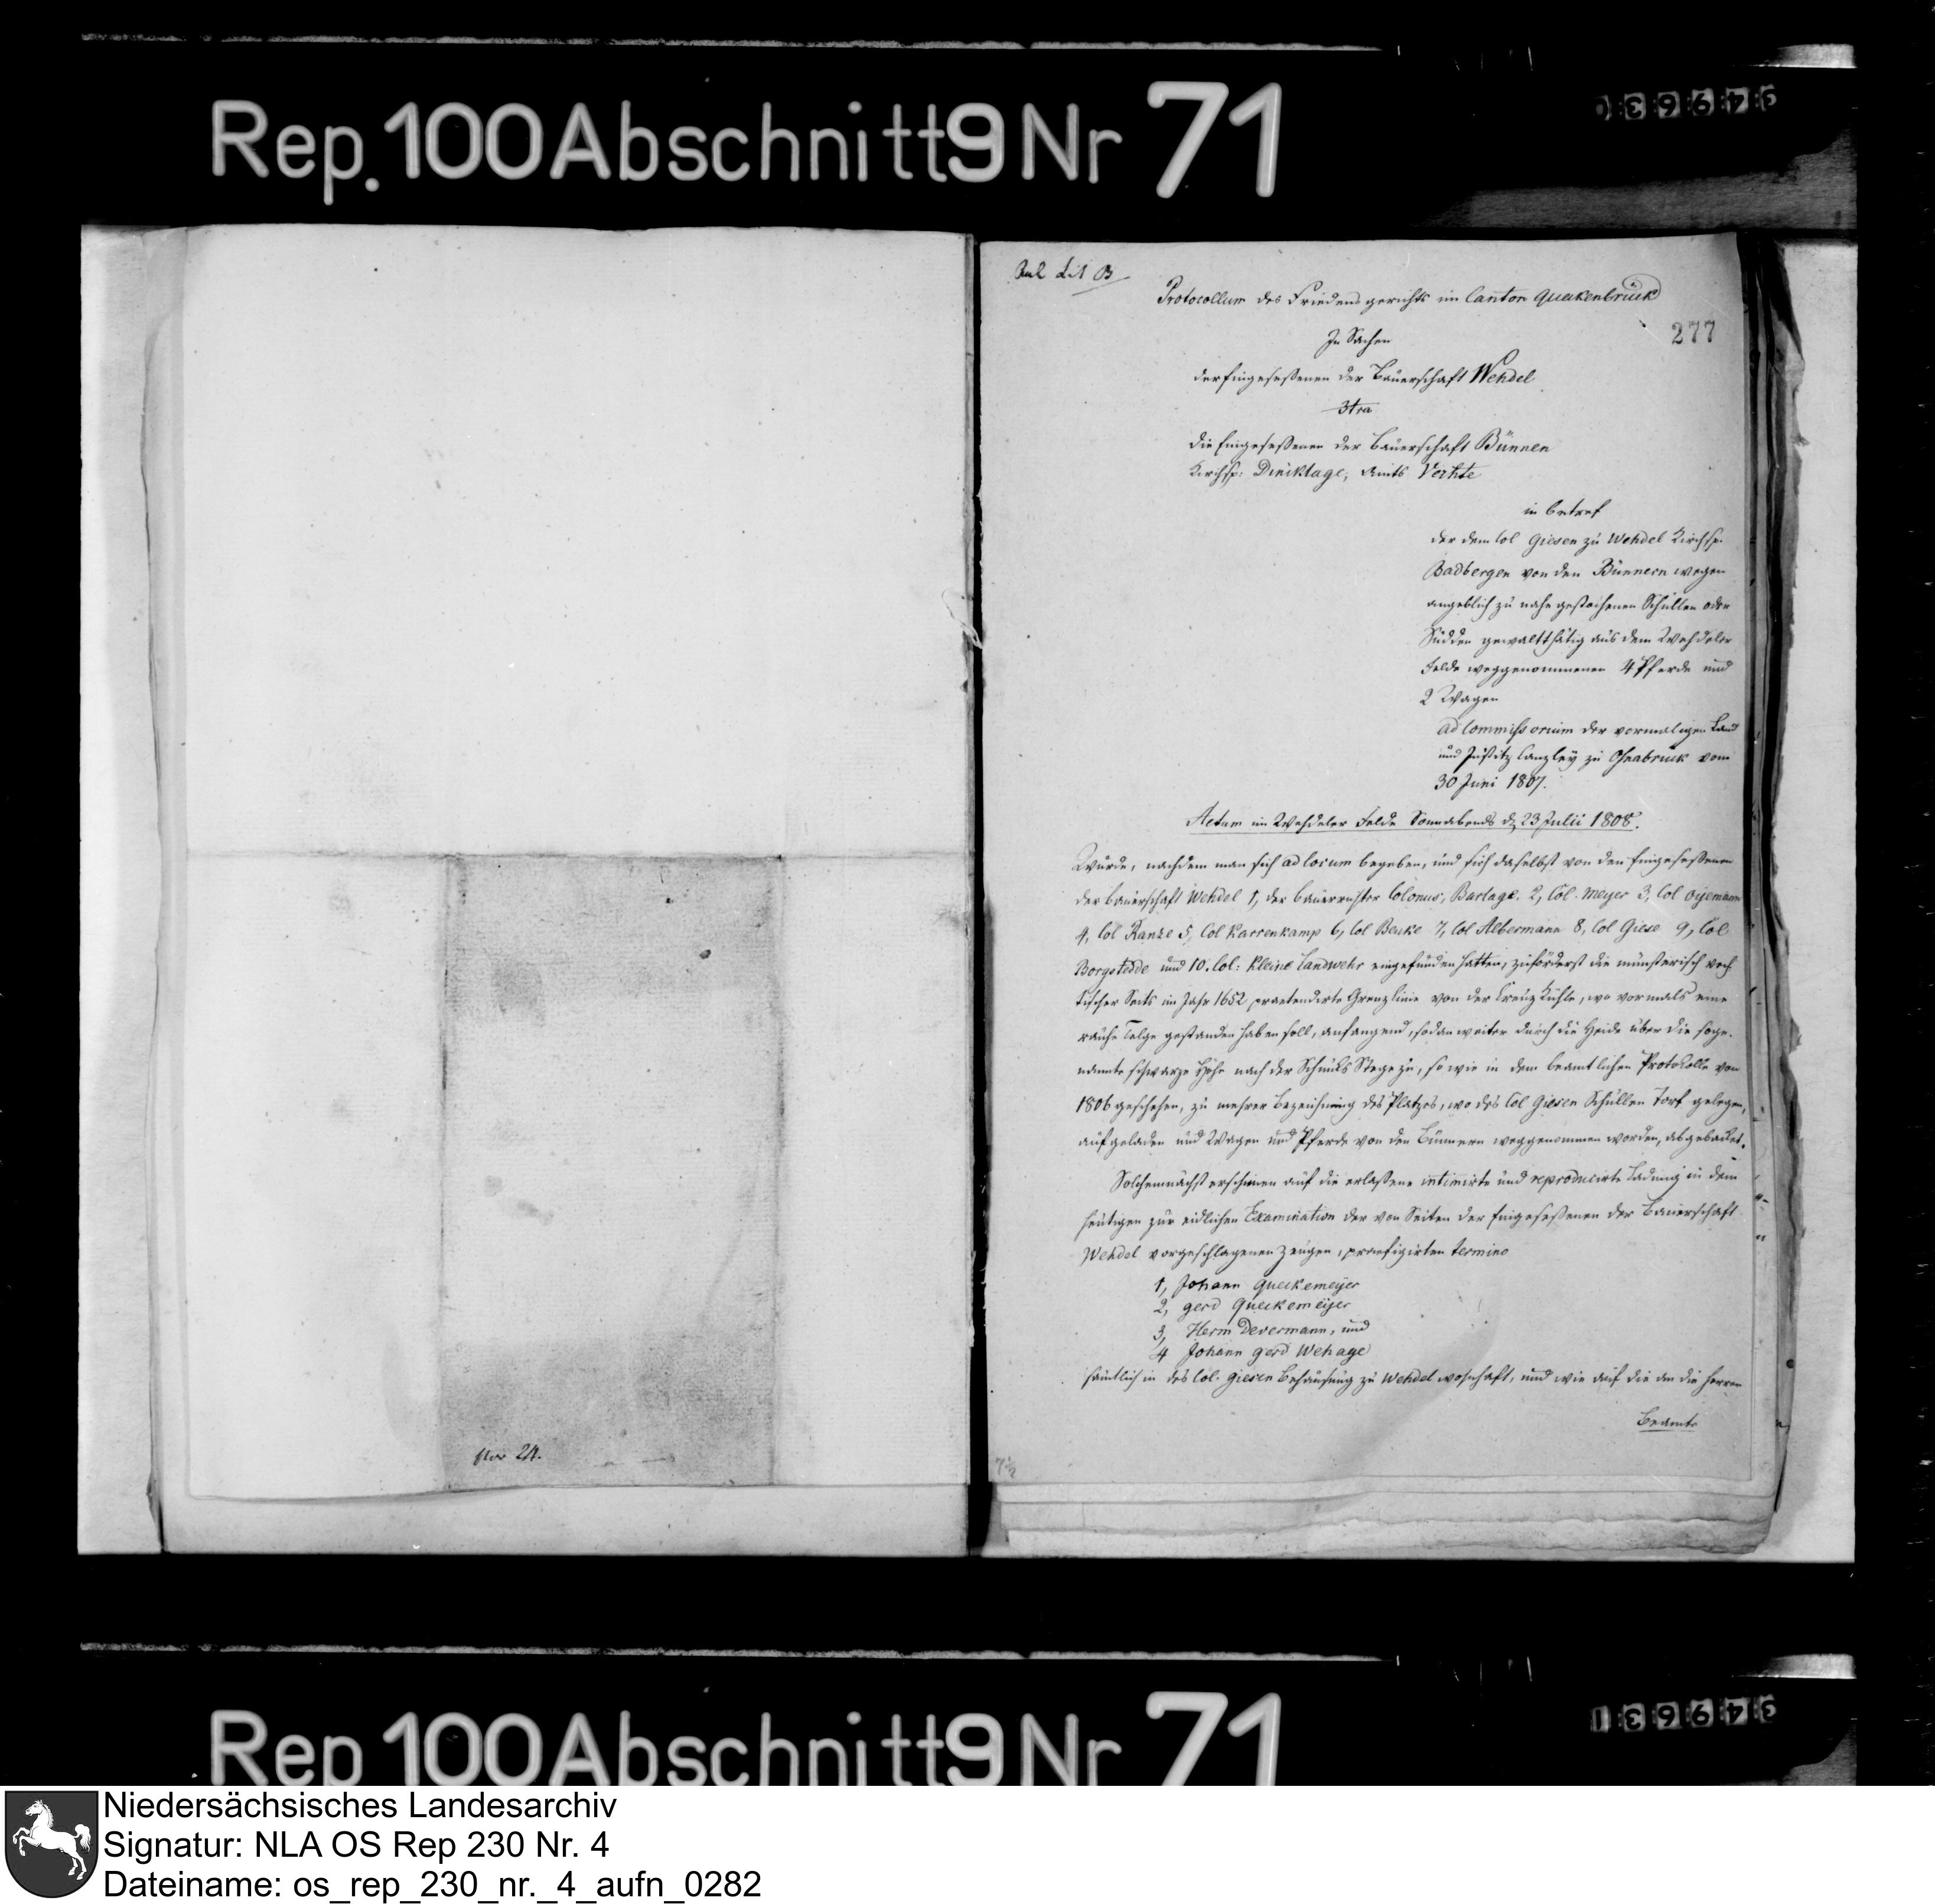 Rep. 100 Abschnitt 9 Nr 71
Lit B
Protocollum des Friedensgerichts im Canton Quakenbrück
277
In Sachen
der Eingeseßenen der Bauerschaft Wehdel
3tra
die Eingeseßenen der Bauerschaft Bünnen
Kirchsp: Dinklage, Amts Vechte
in betref
der dem Col Giesen zu Wehdel Kirchsp.
Badbergen von den Bünnern wegen
angeblich zu nahe gestochenen Schullen oder
Sudden gewaltthätig aus dem Wehdeler
Felde weggenommenen 4 Pferde und
2 Wagen
ad Commissorium der vormaligen Land
und Justitz Canzley zu Osnabrück vom
30 Juni 1807.
Actum im Wehdeler Felde Sonnabends d 23 Julii 1808.
Wurde, nachdem man sich ad locum begeben, und sich daselbst von den Eingeseßenen
der Bauerschaft Wehdel 1, der Bauerrichter Colonus, Barlage. 2, Col. Meyer 3, Col
4, Col Ranze 5, Col Karrenkamp 6, Col Beuke 7, Col Albermann 8, Col Giese 9, Col
Borgstedde und 10. Col: Kleine Landwehr eingefunden hatten, zuförderst die münsterisch vech-
tischer Seits im Jahr 1652 praetendirte Grenzlinie von der Creuz Kuhle, wo vormals eine
rauhe Telge gestanden haben soll, anfangend, sodan weiter durch die Heide über die soge-
nannte schwarze Höhe nach der Schnuls Stege zu, so wie in dem beamtlichen Protokolle von
1806 geschehen, zu mehrer Bezeichnung des Platzes, wo des Col Giesen Schullen Torf gelegen,
aufgeladen und Wagen und Pferde von den Bünnern weggenommen worden, abgebaket.
Solchemnächst erschienen auf die erlaßene intimirte und reproducirte Ladung in dem
heutigen zur eidlichen Examination der von Seiten der Eingeseßenen der Bauerschaft
Wehdel vorgeschlagenen Zeugen, praefigirten termino
1, Johann Queckemeyer
2, Gerd Queckemeyer
3, Herm Devermann, und
4 Johann Gerd Wehage
sämtlich in des Col. Giesen Behausung zu Wehdel wohnhaft, und wie auf die an die Herren
Beamte
24.
7 1/2
Rep 100 Abschnitt 9 Nr 71
Niedersächsisches Landesarchiv
Signatur: NLA OS Rep 230 Nr. 4
Dateiname: os_rep_230_nr._4_aufn_0282